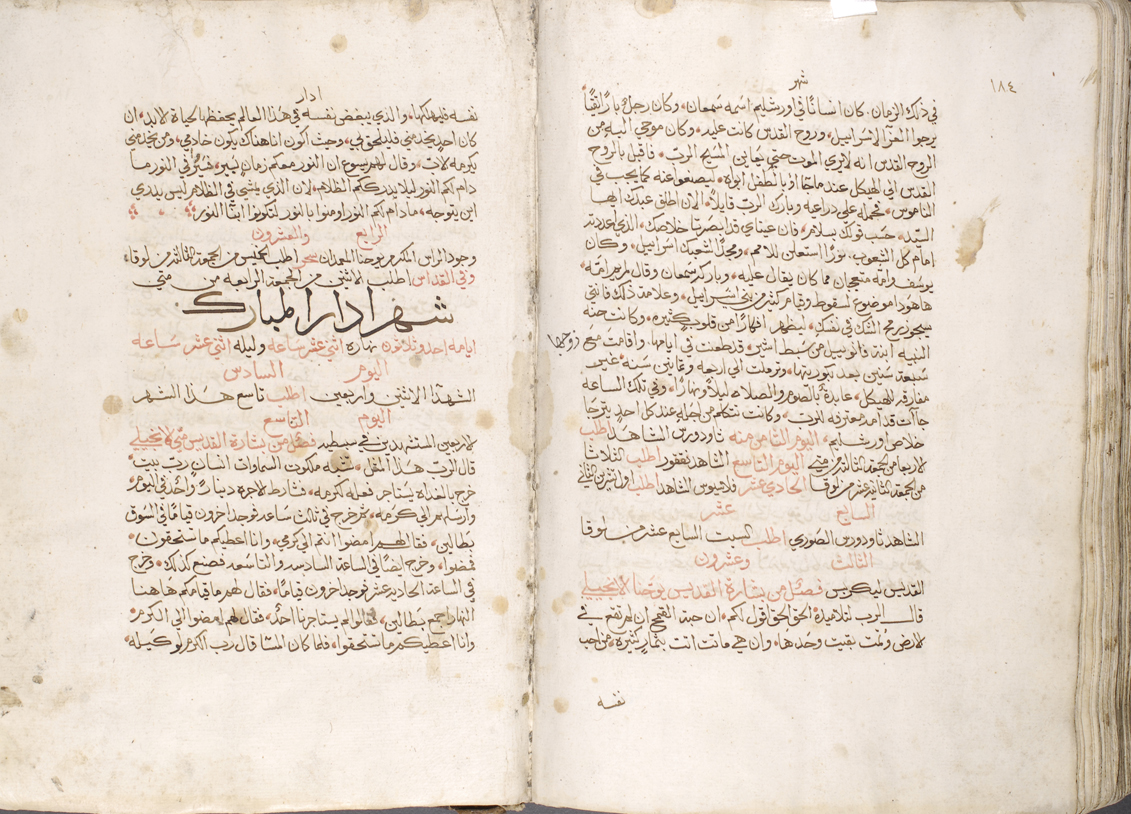 شهر
١٨٤
في ذلك الزمان كان انسانًا في اورشليم اسمه سمعان وكان رجل بار تقيًا
يرجوا العزا لاسراييل وروح القدس كانت عليه وكان موحي اليه من
الروح القدس انه لا يري الموت حتي يعاين المسيح الرب فاقبل بالروح
القدس الي الهيكل عند ما جاوا بالطفل ابواه ليصنعوا عنه كما يجب في
الناموس فحمله علي دراعيه وبارك الرب قايلًا الان اطلق عبدك ايها
السيد حسب قولك بسلام فان عيناي قد ابصرتا خلاصك الذي اعددته
امام كل الشعوب نورًا استعلن للامم ومجدًا لشعبك اسراييل وكان
يوسف وامه متعجبان مما كان يقال عليه وباركه سمعان وقال لمريم امه
ها هودا موضوع لسقوط وقيام كثير من بني اسراييل وعلامة ذلك فانتي
سيجوز رمح الشك في نفسك ليظهر افكارًا من قلوب كثيره وكانت حنه
النبيه ابنة فانوييل من سبط اشير قد طعنت في ايامها واقامت مع زوجها
سبعة سنين بعد بكوريتها وترملت الي اربعه وثمانين سنه غير
مفارقه للهيكل عابدة بالصوم والصلاه ليلًا ونهارًا وفي تلك الساعه
جاات قدامه معترفه للرب وكانت تتكلم من اجله عند كل احد يترجا
خلاص اورشليم اليوم الثامن منه تاودورس الشاهد اطلب
لاربعا من الجمعه الثانيه من متي اليوم التاسع الشاهد نيقفور اطلب الثلاثا
من الجمعه الثانيه عشر من لوقا الحادي عشر فلاسيوس الشاهد اطلب اول تشرين الثاني
السابع عشر
الشاهد تاودورس الصوري اطلب السبت السابع عشر من لوقا
الثالث وعشرون
القديس بوليكربس فصل من بشارة القديس يوحنا الانجيلي
قال الرب لتلاميذه الحق الحق اقول لكم ان حبة القمح ان لم تقع في
لارض وتمت بقيت وحدها وان هي ماتت اتت بثمار كثيره من احب
نفسه
ادار
نفسه فليهلكها والذي يبغض نفسه في هذا العالم يحفظها لحياة لابد ان
كان احد يخدمني فليلحق بي وحيث اكون انا هناك يكون خادمي ومن يخدمني
يكرمه لاب وقال لهم يسوع ان النور معكم زمان يسير فسيروا في النور ما
دام لكم النور ليلا يدرككم الظلام لان الذي يمشي في الظلام ليس يدري
اين يتوجه ما دام لكم النور اومنوا بالنور لتكونوا ابنا النور
الرابع والعشرون
وجود الراس المكرم يوحنا المعمدان سحر اطلب لخميس من الجمعه الثالثه من لوقا
وفي القداس اطلب لاثنين من الجمعه الرابعه من متي
شهر ادار المبارك
ايامه احد وثلاثون نهاره اثني عشر ساعه وليله اثني عشر ساعه
اليوم السادس
الشهدا الاثنين واربعين اطلب تاسع هذا الشهر
اليوم التاسع
لاربعين المستشهدين في سبسطيه فصل من بشارة القديس متي الانجيلي
قال الرب هذا المثل شبه ملكوت السماوات انسان رب بيت
خرج بالغداه يستاجر فعله لكرمه فشارط لاجره دينارًا واحد في اليوم
وارسلهم الي كرمه ثم خرج في ثالث ساعه فوجد اخرون قيامًا في السوق
بطالين فقال لهم امضوا انتم الي كرمي وانا اعطيكم ما تستحقون
فمضوا وخرج ايضًا في الساعه السادسه والتاسعه فصنع كذلك وخرج
في الساعه الحاديه عشر فوجد اخرون قيامًا فقال لهم ما قيامكم هاهنا
النهار اجمع بطالين فقالوا لم يستاجرنا احدًا فقال لهم امضوا الي الكرم
وانا اعطيكم ما تستحقوا فلما كان المسا قال رب الكرم لوكيله